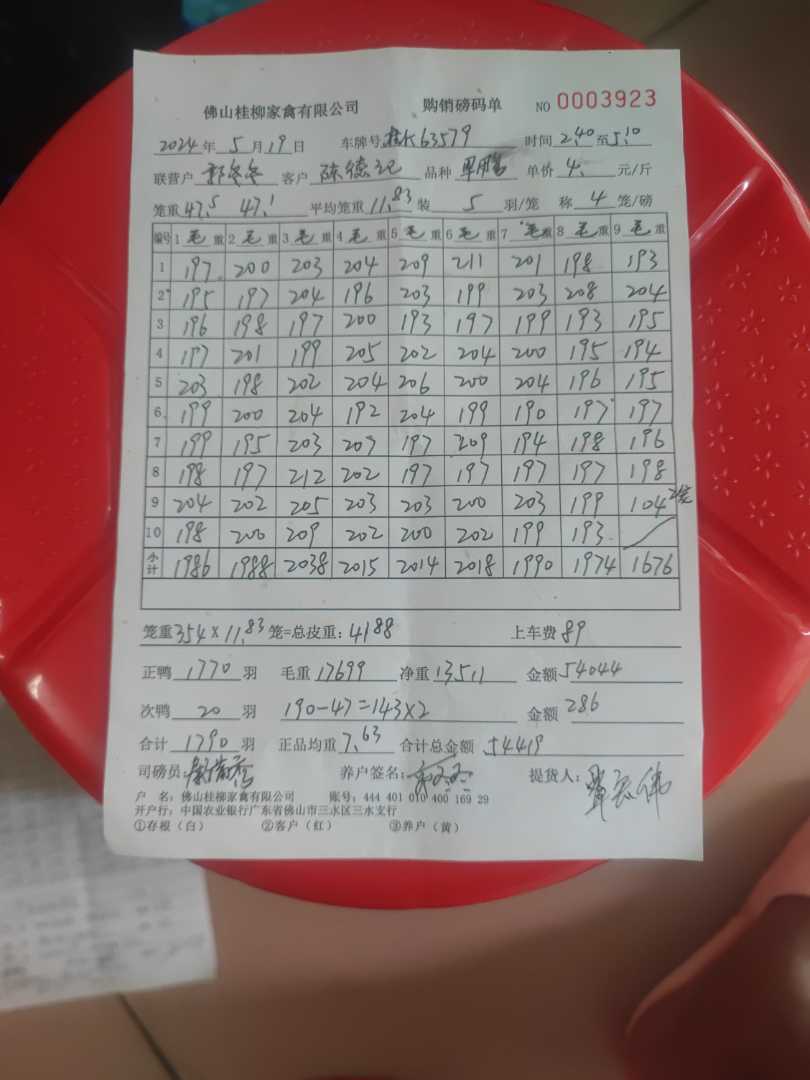 佛山桂柳家禽有限公司 购销磅码单 NO 0003923
2024年 5月19日 车牌号 桂K63579 时间 2:40至5:10
联营户 郭冬冬 客户 陈德记 品种 单价 4. 元/斤
笼重 47.5 47.1 平均笼重 11.83 装 5 羽/笼 称 4 笼/磅
编号 1毛重 2毛重 3毛重 4毛重 5毛重 6毛重 7毛重 8毛重 9毛重
1 197 200 203 204 209 211 201 198 193
2 195 197 204 196 203 199 203 208 204
3 196 198 197 200 193 197 199 193 195
4 197 201 199 205 202 204 200 195 194
5 203 198 202 204 206 200 204 196 195
6 199 200 204 192 204 199 190 197 197
7 199 195 203 207 197 209 194 198 196
8 198 197 212 202 197 197 197 197 198
9 204 202 205 203 203 200 203 199 104 2笼
10 198 200 209 202 200 202 199 193
小计 1986 1988 2038 2015 2014 2018 1990 1974 1676
笼重 354×11.83 笼=总皮重:4188 上车费 89
正鸭 1770 羽 毛重 17699 净重 13511 金额 54044
次鸭 20 羽 190-47=143×2 金额 286
合计 1790 羽 正品均重 7.63 合计总金额 54419
司磅员: 养户签名: 提货人:
户 名:佛山桂柳家禽有限公司 账号:444 401 010 400 169 29
开户行:中国农业银行广东省佛山市三水区三水支行
①存根(白) ②客户(红) ③养户(黄)